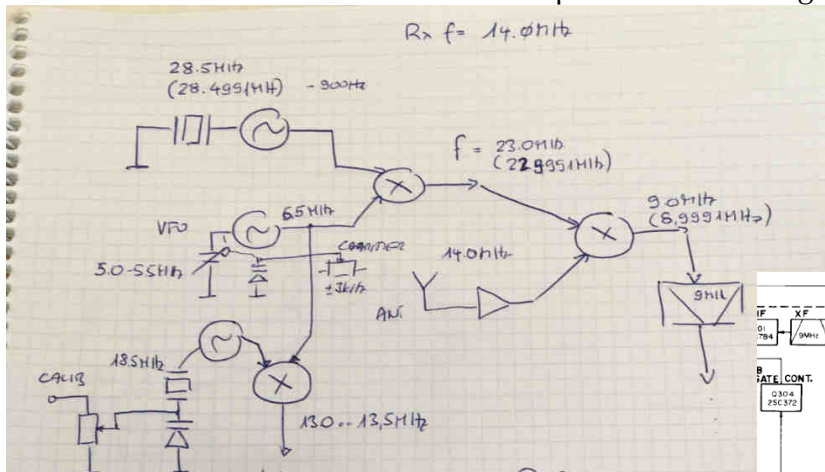 Rx f= 14.0MHz
28.5MHz
(28.4991MH) -900Hz
f = 23.0MHz
(22.9991MHz)
9.0MHz
(8,9991MHz)
VFO
5.5MHz
5.0-5.5MHz
±3kHz
14.0MHz
ANT.
9MHz
18.5MHz
CALIB
13.0..13,5MHz
IF
XF
9MHz
GATE CONT.
Q304
2SC372